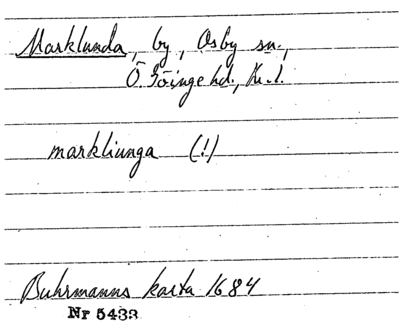 Marklunda, by, Osby sn.,
Ö. Göinge hd., Kr. l.
markliunga (!)
Buhrmanns karta 1684
Nr 5433